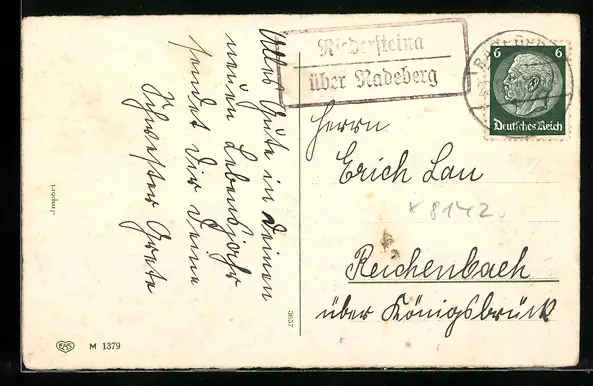 Alles Gute in Deinen
neuen Lebensjahr
sendet Dir Deine
Schwester Grete
Import
EAS
M 1379
3657
Niedersteina
über Radeberg
6 6
Deutsches Reich
Herrn
Erich Lau
8142
Reichenbach
über Königsbrück